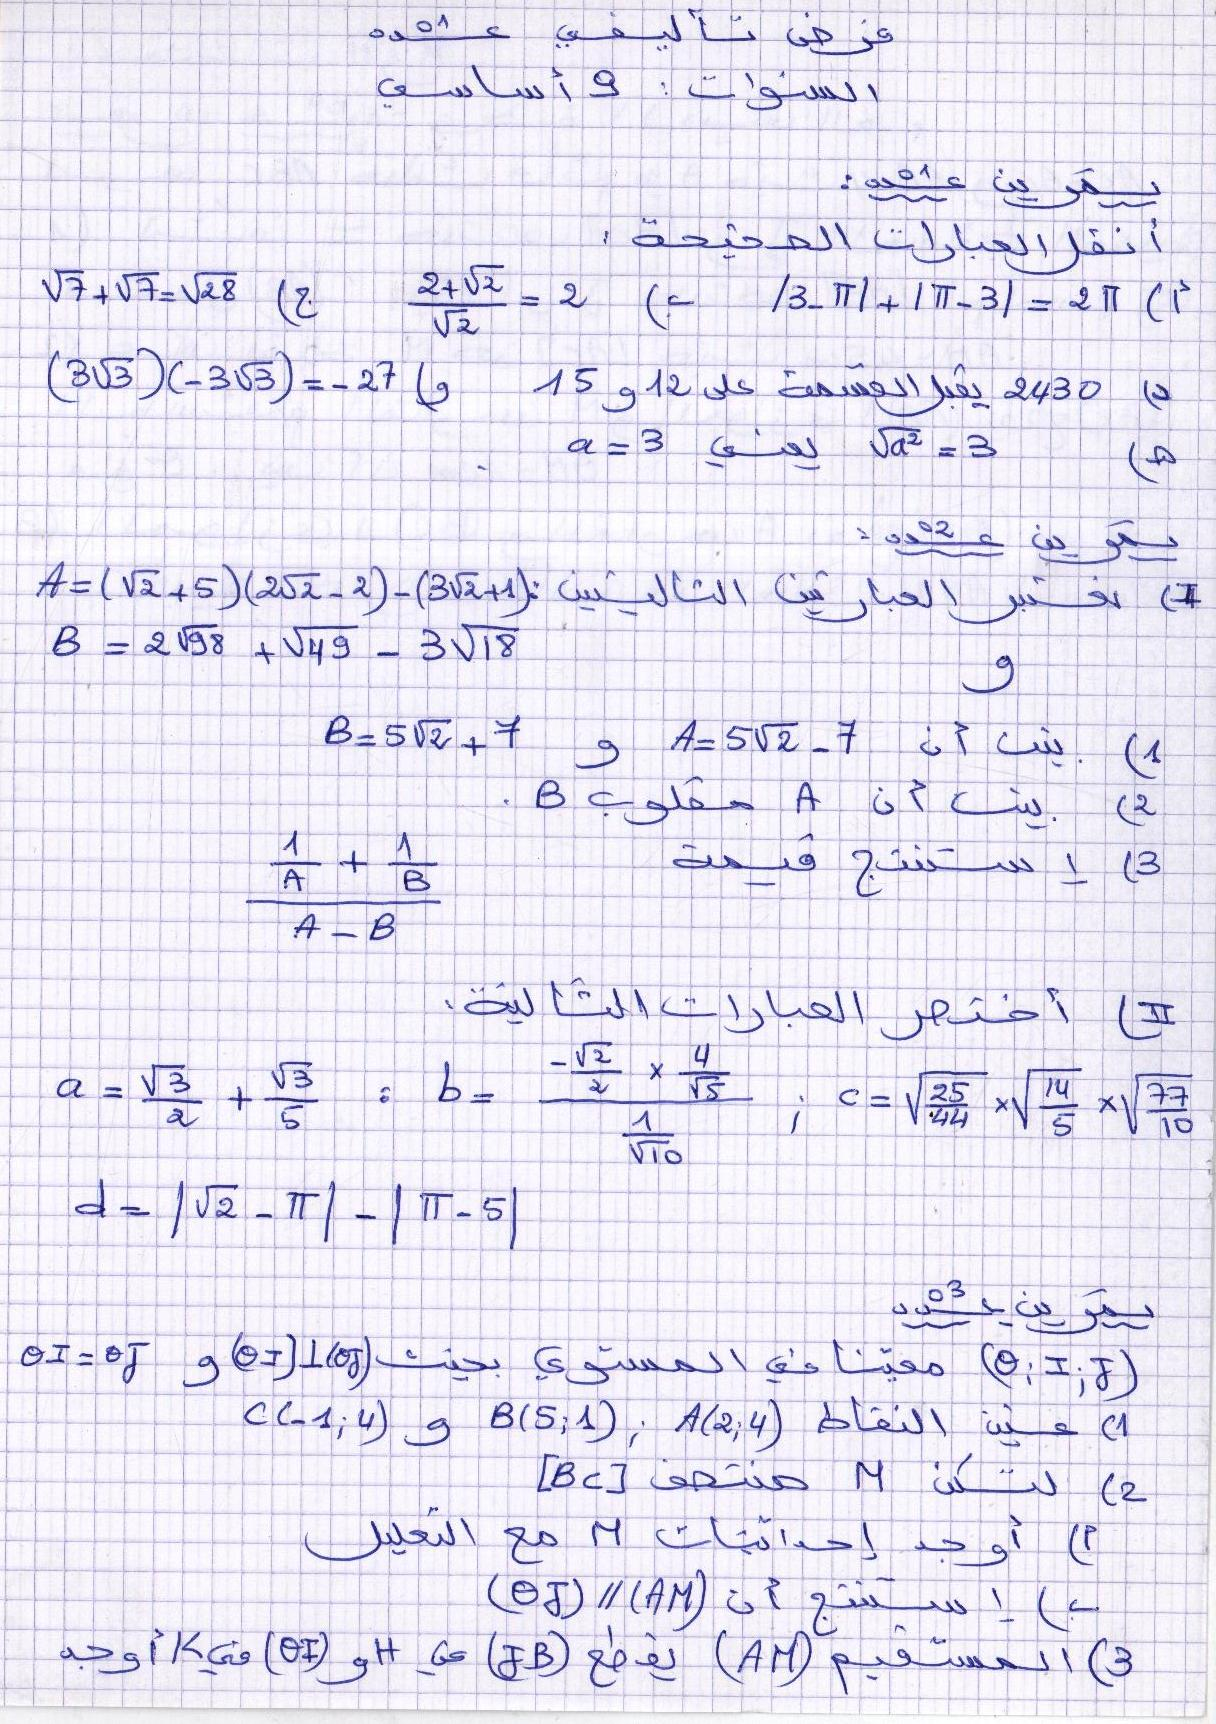 فرض تأليفي عـ01ـدد
السنوات: 9 أساسي
تمرين عـ01ـدد:
أنقل العبارات الصحيحة:
أ) |3-π|+|π-3|=2π ب) (2+√2)/√2=2 ج) √7+√7=√28
د) 2430 يقبل القسمة على 12 و 15 و) (3√3)(-3√3)=-27
ه) √a²=3 يعني a=3.
تمرين عـ02ـدد:
I) نعتبر العبارتين التاليتين: A=(√2+5)(2√2-2)-(3√2+1)
و B=2√98+√49-3√18
1) بين أن A=5√2-7 و B=5√2+7
2) بين أن A مقلوب B.
3) إستنتج قيمة (1/A+1/B)/(A-B)
II) أختصر العبارات التالية.
a=√3/2+√3/5 ; b=(-√2/2×4/√5)/(1/√10) ; c=√(25/44)×√(14/5)×√(77/10)
d=|√2-π|-|π-5|
تمرين عـ03ـدد
(O;I;J) معينا في المستوي بحيث (OI)⊥(OJ) و OI=OJ
1) عين النقاط A(2;4) ; B(5;1) و C(-1;4)
2) لتكن M منتصف [BC]
أ) أوجد إحداثيات M مع التعليل
ب) إستنتج أن (AM)//(OJ)
3) المستقيم (AM) يقطع (JB) في H و (OI) في K أوجد